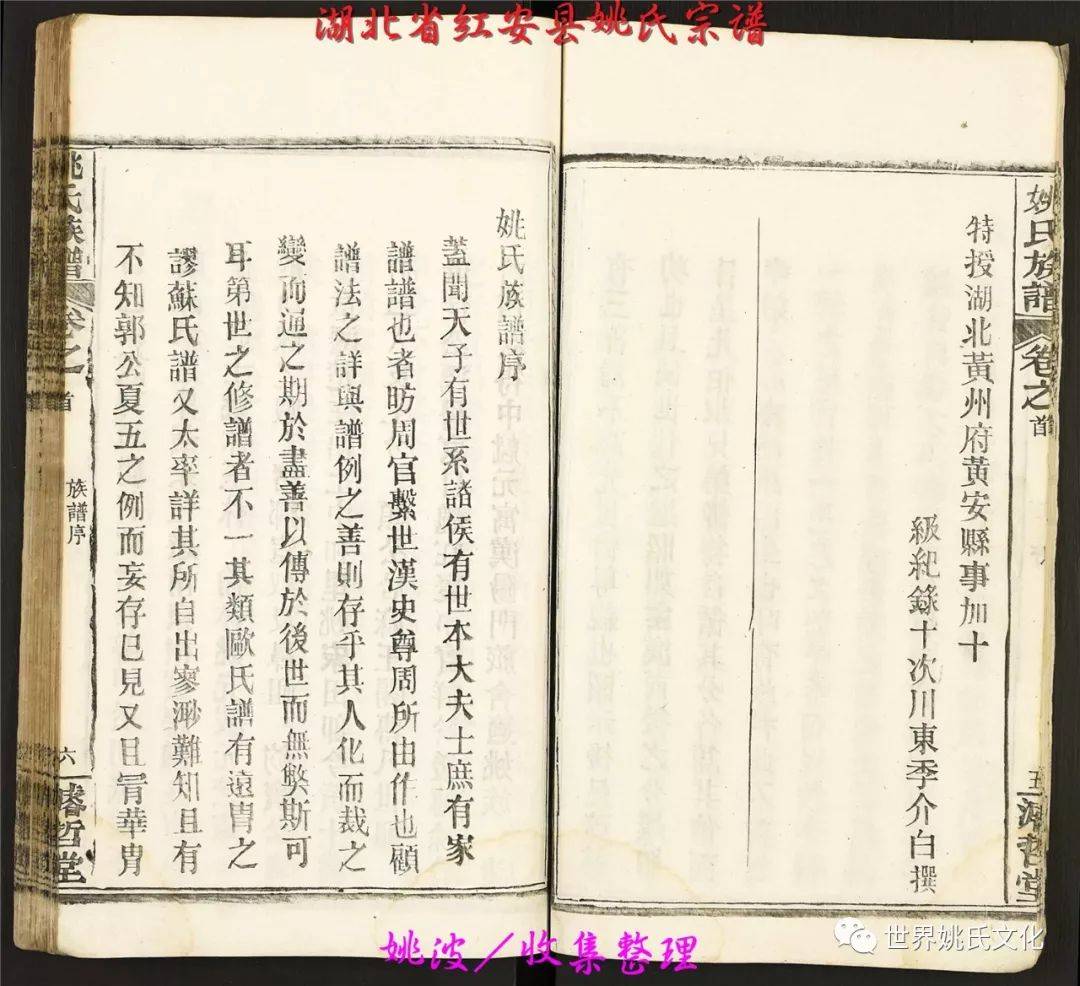 湖北省红安县姚氏宗谱
姚氏族譜
卷之首
五
濬哲堂
特授湖北黃州府黃安縣事加十
級紀錄十次川東季介白撰
姚氏族譜序
蓋聞天子有世系諸侯有世本大夫士庶有家
譜譜也者昉周官繫世漢史尊周所由作也顧
譜法之詳與譜例之善則存乎其人化而裁之
變而通之期於盡善以傳於後世而無弊斯可
耳第世之修譜者不一其類歐氏譜有遠胄之
謬蘇氏譜又太率詳其所自出寥渺難知且有
不知郭公夏五之例而妄存已見又且冐華胄
姚氏族譜
卷之首
族譜序
六
濬哲堂
姚波/收集整理
世界姚氏文化